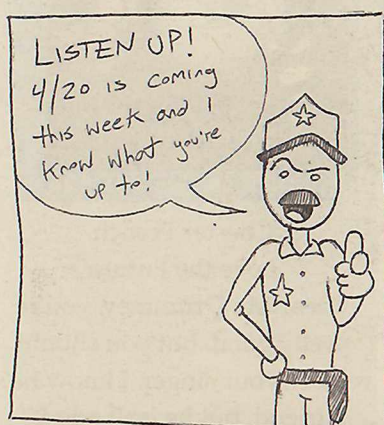 LISTEN UP!
4/20 is coming
this week and I
know what you're
up to!